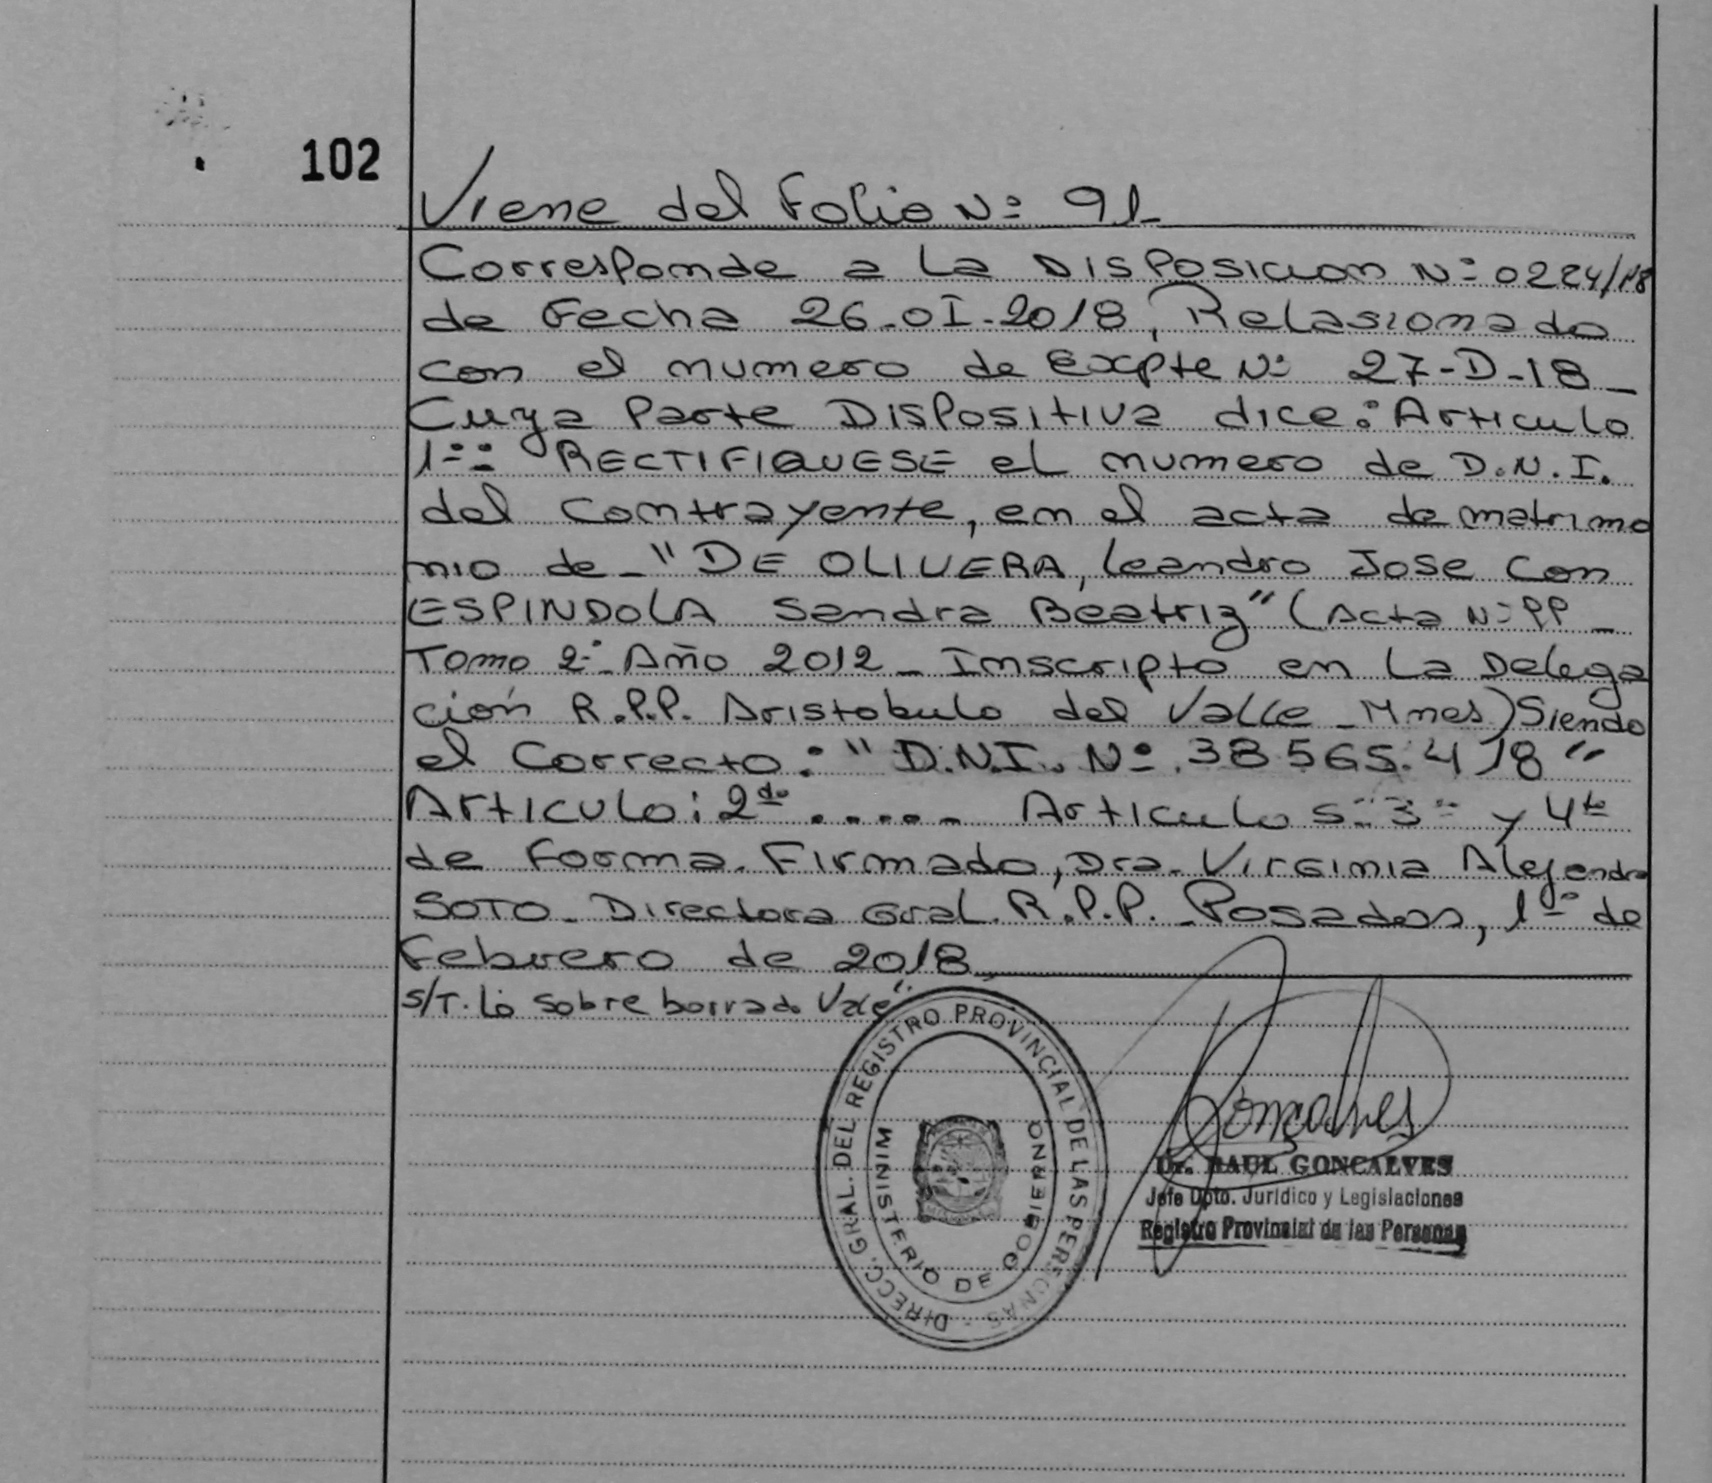 102
Viene del Folio Nº 91-
Corresponde a La DISPOSICION Nº 0224/18
de Fecha 26-0I-2018, Relasionado
con el numero de Expte Nº 27-D-18-
Cuya Parte DISPOSITIVA dice: Articulo
1º: RECTIFIQUESE el numero de D.N.I.
del Contrayente, en el acta de matrimo
nio de - "DE OLIVERA, Leandro Jose con
ESPINDOLA Sandra Beatriz" (Acta Nº 99 -
Tomo 2º - Año 2012 - Inscripto en La Delega
ción R.P.P. Aristobulo del Valle - Mnes) Siendo
el Correcto: "D.N.I. Nº 38565.418"
Articulo: 2do ..... Articulo s: 3º y 4to
de Forma. Firmado, Dra. Virginia Alejandra
SOTO - Directora Gral. R.P.P. - Posadas, 1º de
Febrero de 2018
S/T. Lo sobre borrado Vale"
DIRECC. GRAL. DEL REGISTRO PROVINCIAL DE LAS PERSONAS -
MINISTERIO DE GOBIERNO
Goncalves
Dr. RAUL GONCALVES
Jefe Dpto. Jurídico y Legislaciones
Registro Provincial de las Personas